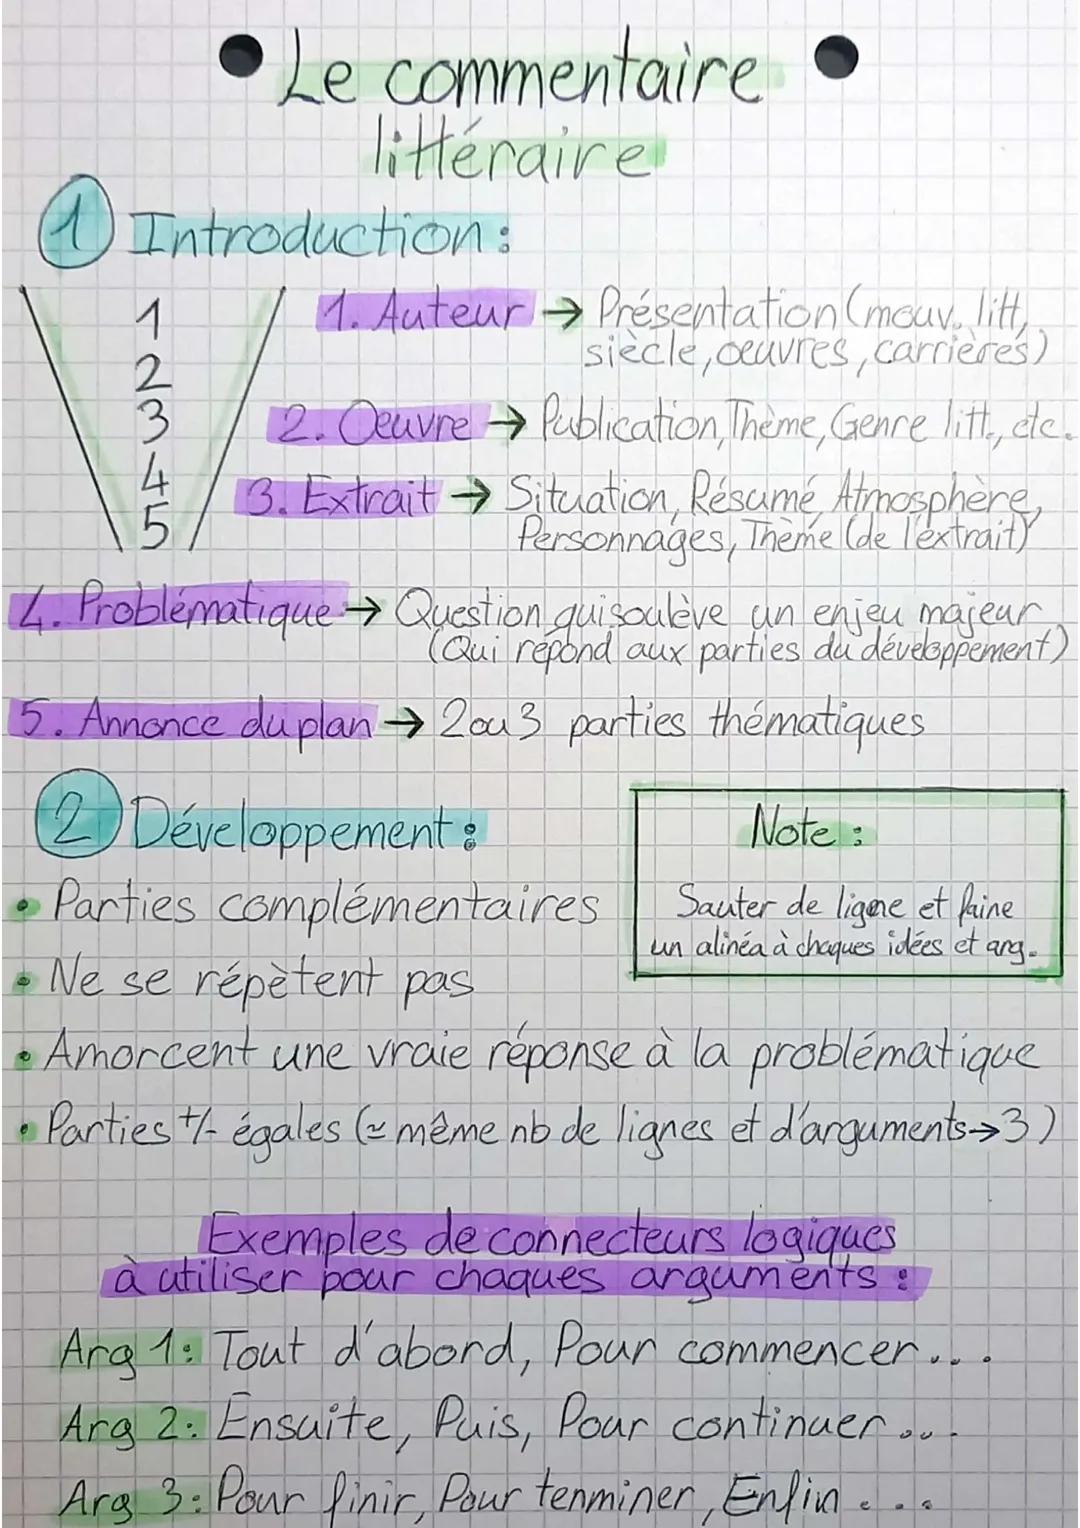 Le commentaire
littéraire
1 Introduction :
1
2
3
4
5
1. Auteur → Présentation (mouv. litt,
siècle, oeuvres, carrières)
2. Oeuvre → Publication, Thème, Genre litt., etc.
3. Extrait → Situation, Résumé, Atmosphère,
Personnages, Thème (de l'extrait)
4. Problématique → Question qui soulève un enjeu majeur
(Qui répond aux parties du développement)
5. Annonce du plan → 2 ou 3 parties thématiques
2 Développement :
• Parties complémentaires
• Ne se répètent pas
• Amorcent une vraie réponse à la problématique
• Parties +/- égales (≃ même nb de lignes et d'arguments → 3)
Note :
Sauter de ligne et faire
un alinéa à chaques idées et arg.
Exemples de connecteurs logiques
à utiliser pour chaques arguments :
Arg 1 : Tout d'abord, Pour commencer...
Arg 2 : Ensuite, Puis, Pour continuer...
Arg 3 : Pour finir, Pour terminer, Enfin...